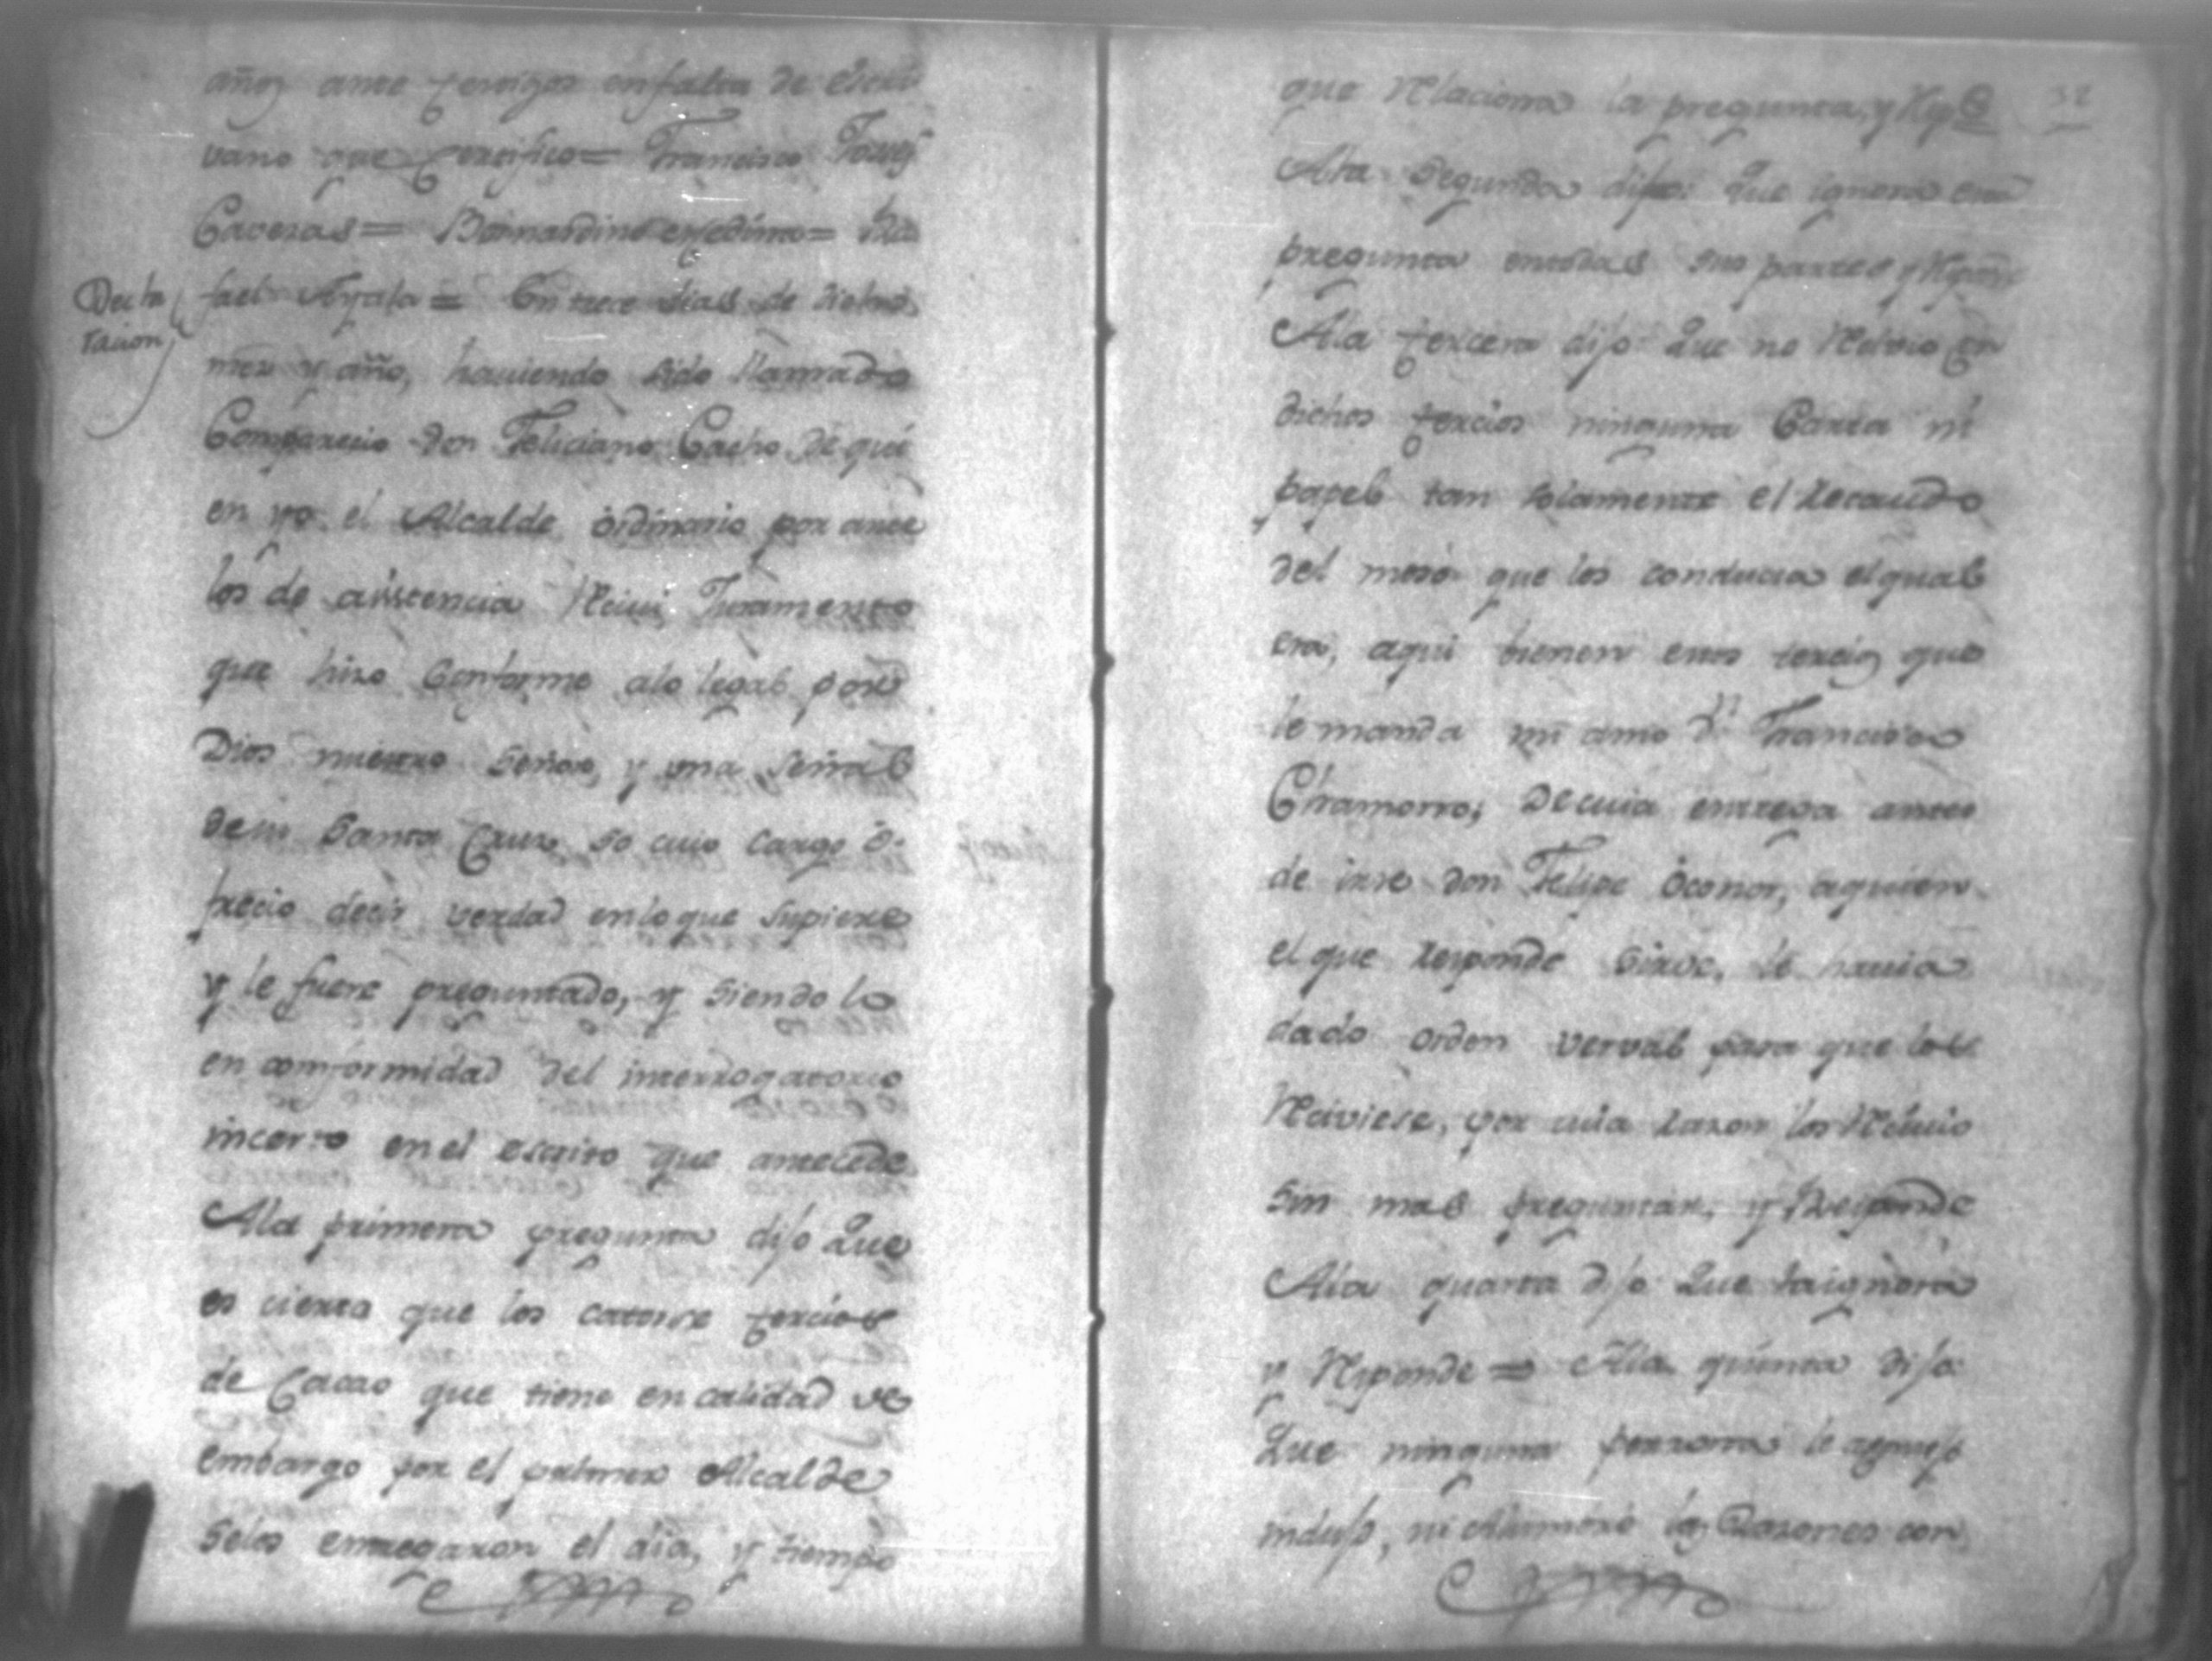 años ante testigos en falta de Escri
vano que Certifico = Francisco
Caveras = Bernardino = Ra
fael Ayala = En trece dias de dicho
Decla
racion
mes y año, haviendo sido llamado
Comparecio don Feliciano Cacho de qui
en yo el Alcalde ordinario por ante
los de asistencia Reciví Juramento
que hizo Conforme alo legal por
Dios nuestro Señor, y una señal
desu Santa Cruz so cuio cargo o
frecio decir verdad enloque supiere
y le fuere preguntado, y siendo lo
en comformidad del interrogatorio
incerto enel escrito que antecede
Ala primera pregunta dijo Que
es cierto que los catorse tercios
de Cacao que tiene en calidad de
embargo por el primer Alcalde
selos entregaron el dia, y tiempo
que Relaciona la pregunta, y Rpde
32
Ala Segunda dijo: Que ignora esta
pregunta entodas sus partes y
Ala tercera dijo: Que no Recivio con
dichos tercios ninguna Carta ni
papel tan solamente el Recaudo
del moso que los conducia elqual
era, aqui bienen estos tercios que
le manda mi amo Dn Francisco
Chamorro; Decuia entrega antes
de irse don Felipe Oconor, aquien
el que responde sirve, le havia
dado orden verval para que los
Reciviese, por cuia razon los Recivio
sin mas preguntar, y Responde
Ala quarta dijo Que laignora
y Rsponde = Ala quinta dijo:
Que ninguna perzona le
indujo, ni las Razones con